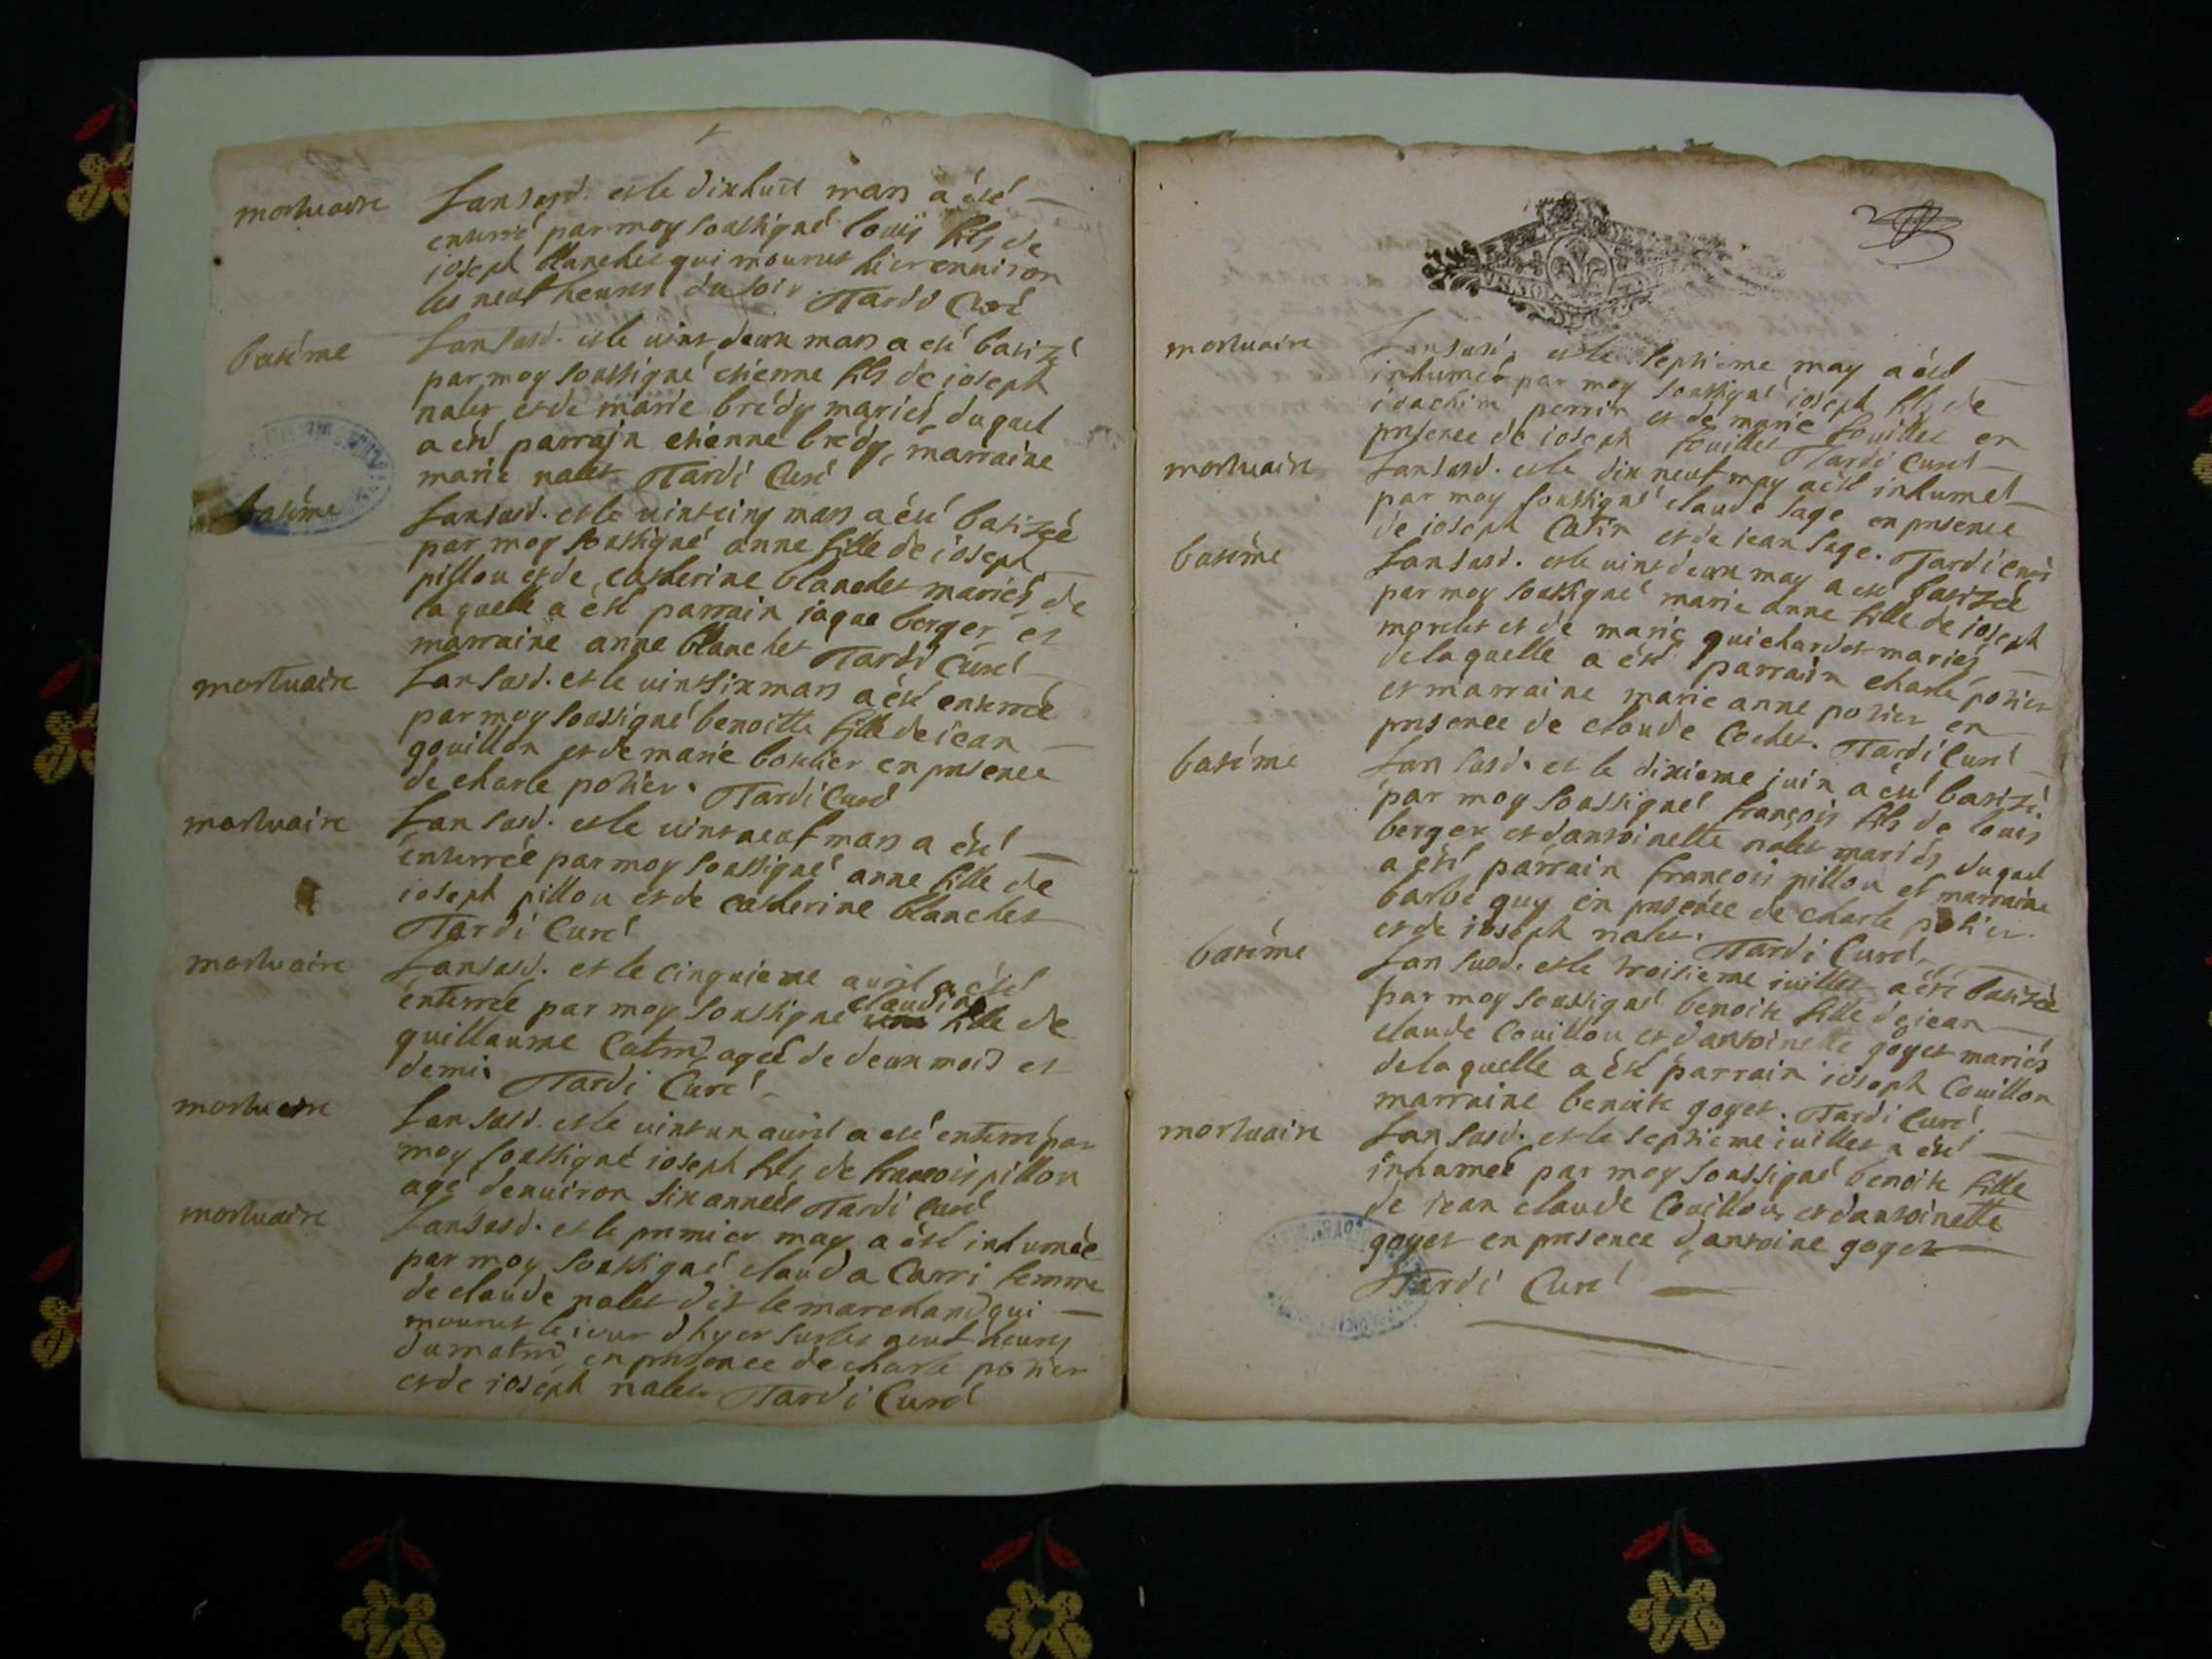 mortuaire
Lan susd. et le dixhuit mars a été
enterré par moy soussigné louis fils de
ioseph blanchet qui mourut hier enuiron
les neuf heures du soir Tardi Curé
batéme
Lan susd. et le uint deux mars a été batizé
par moy soussigné etienne fils de ioseph
nalet et de marie brédy mariés duquel
a été parrain etienne brédy, marraine
marie nalet Tardi Curé
batéme
Lan susd. et le uintcinq mars a été batizéé
par moy soussigné anne fille de ioseph
pillou et de catherine blanchet mariés de
laquelle a été parrain iaque berger et
marraine anne blanchet Tardi Curé
mortuaire
Lan susd. et le uintsix mars a été enterréé
par moy soussigné benoitte fille de iean
gouillon et de marie boutier en pnsence
de charle potier. Tardi Curé
mortuaire
Lan susd. et le uintneuf mars a été
enterrée par moy soussigné anne fille de
ioseph pillou et de catherine blanchet
Tardi Curé
mortuaire
Lan susd. et le cinquieme auril a été
enterrée par moy soussigné claudine fille de
guillaume Catin, ageé de deux mois et
demi. Tardi Curé
mortuaire
Lan susd. et le uintun auril a été enterré par
moy soussigné ioseph fils de francois pillou
agé denuiron six anneés Tardi Curé
mortuaire
Lan susd. et le pnmier may a été inhumée
par moy soussigné clauda Carri femme
de claude nalet dit le marchand qui
mourut le iour dhyer sur les neuf heures
du matin, en pnsence de charle potier
et de ioseph nalet Tardi Curé
mortuaire
Lan susd. et le septieme may a été
inhumé par moy soussigné ioseph fils de
ioachim perrin et de marie fouillet en
pnsence de ioseph fouillet Tardi Curé
mortuaire
Lan susd. et le dix neuf may a été inhumé
par moy soussigné claude sage en pnsence
de ioseph Catin et de iean sage. Tardi Curé
batéme
Lan susd. et le uint deux may a été batizée
par moy soussigné marie anne fille de ioseph
morelet et de marie guichardet mariés
delaquelle a été parrain charle potier
et marraine marie anne potier en
pnsence de claude Cochet. Tardi Curé
batéme
Lan susd. et le dixieme iuin a été batizé
par moy soussigné françois fils de louis
berger et dantoinette nalet mariés duquel
a été parrain françois pillou et marraine
barbe guy en pnsence de charle potier
et de ioseph nalet. Tardi Curé
batéme
Lan susd. et le troisieme iuillet a été batizée
par moy soussigné benoite fille de iean
claude Couillou et dantoinette goyet mariés
delaquelle a été parrain ioseph Couillou
marraine benoite goyet. Tardi Curé
mortuaire
Lan susd. et le septieme iuillet a été
inhumeé par moy soussigné benoite fille
de iean claude Couillou, et dantoinette
goyet en pnsence d'antoine goyet
Tardi Curé